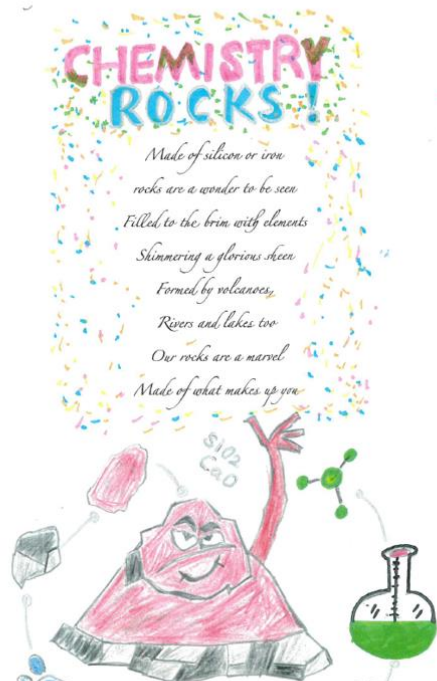 CHEMISTRY
ROCKS!
Made of silicon or iron
rocks are a wonder to be seen
Filled to the brim with elements
Shimmering a glorious sheen
Formed by volcanoes,
Rivers and lakes too
Our rocks are a marvel
Made of what makes up you
SiO2
CaO